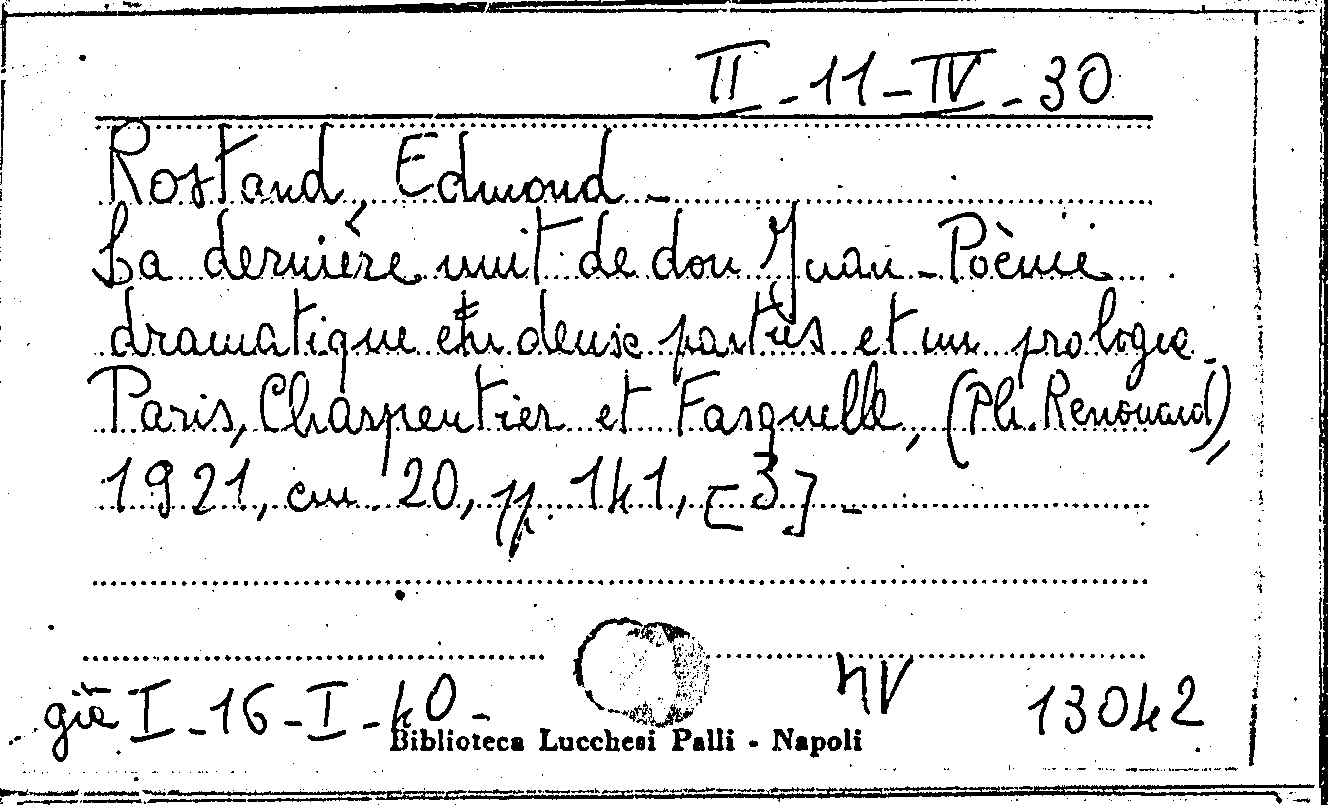 II - 11 - IV - 30
Rostand, Edmond -
La dernière nuit de don Juan - Poème
dramatique en deux parties et un prologue -
Paris, Charpentier et Fasquelle, (Ph. Renouard),
1921, cm. 20, pp. 141, [3] -
già I - 16 - I - 40 -
NV
13042
Biblioteca Lucchesi Palli - Napoli